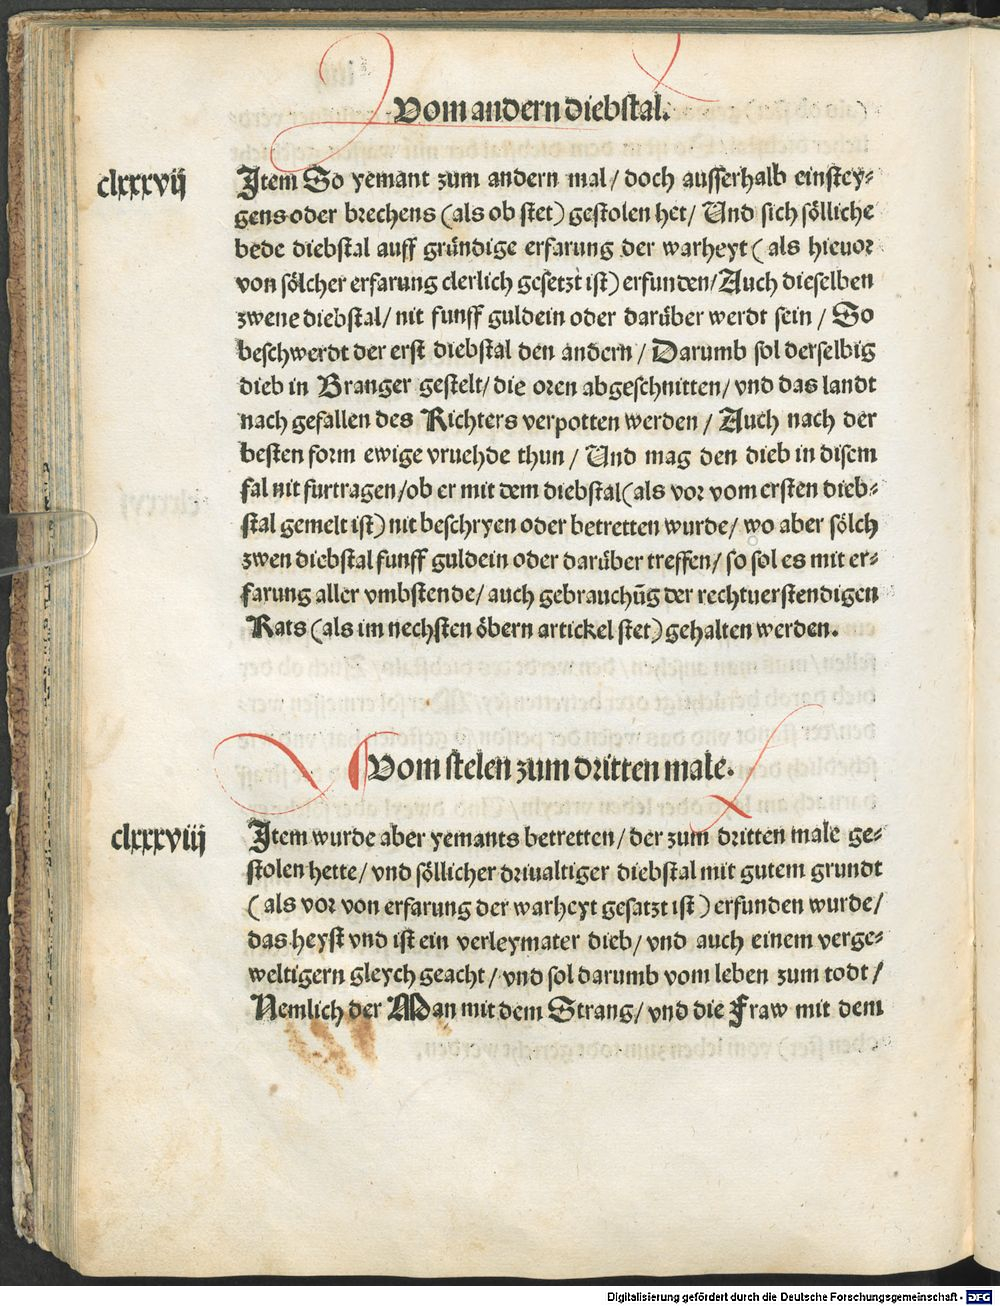 Vom andern diebstal.
clxxxvij
Item So yemant zum andern mal/ doch ausserhalb einstey⸗
gens oder brechens (als ob stet) gestolen het/ Und sich söl̄liche
bede diebstal auff gründige erfarung der warheyt ( als hieuor
von sölcher erfarung clerlich gesetzt ist) erfunden/ Auch dieselben
zwene diebstal/ nit funff guldein oder darüber werdt sein / So
beschwerdt der erst diebstal den andern / Darumb sol derselbig
dieb in Branger gestelt/ die oren abgeschnitten/ vnd das landt
nach gefallen des Richters verpotten werden / Auch nach der
besten form ewige vruehde thun / Und mag den dieb in disem
fal nit furtragen/ ob er mit dem diebstal (als vor vom ersten dieb⸗
stal gemelt ist) nit beschryen oder betretten wurde/ wo aber sölch
zwen diebstal funff guldein oder darüber treffen/ so sol es mit er⸗
farung aller vmbstende/ auch gebrauchūg der rechtuerstendigen
Rats (als im nechsten öbern artickel stet) gehalten werden.
Vom stelen zum dritten male.
clxxxviij
Item wurde aber yemants betretten/ der zum dritten male ge⸗
stolen hette/ vnd söllicher driualtiger diebstal mit gutem grundt
( als vor von erfarung der warheyt gesatzt ist ) erfunden wurde/
das heyst vnd ist ein verleymater dieb/ vnd auch einem verge⸗
weltigern gleych geacht / vnd sol darumb vom leben zum todt /
Nemlich der Man mit dem Strang/ vnd die Fraw mit dem
Digitalisierung gefördert durch die Deutsche Forschungsgemeinschaft - DFG